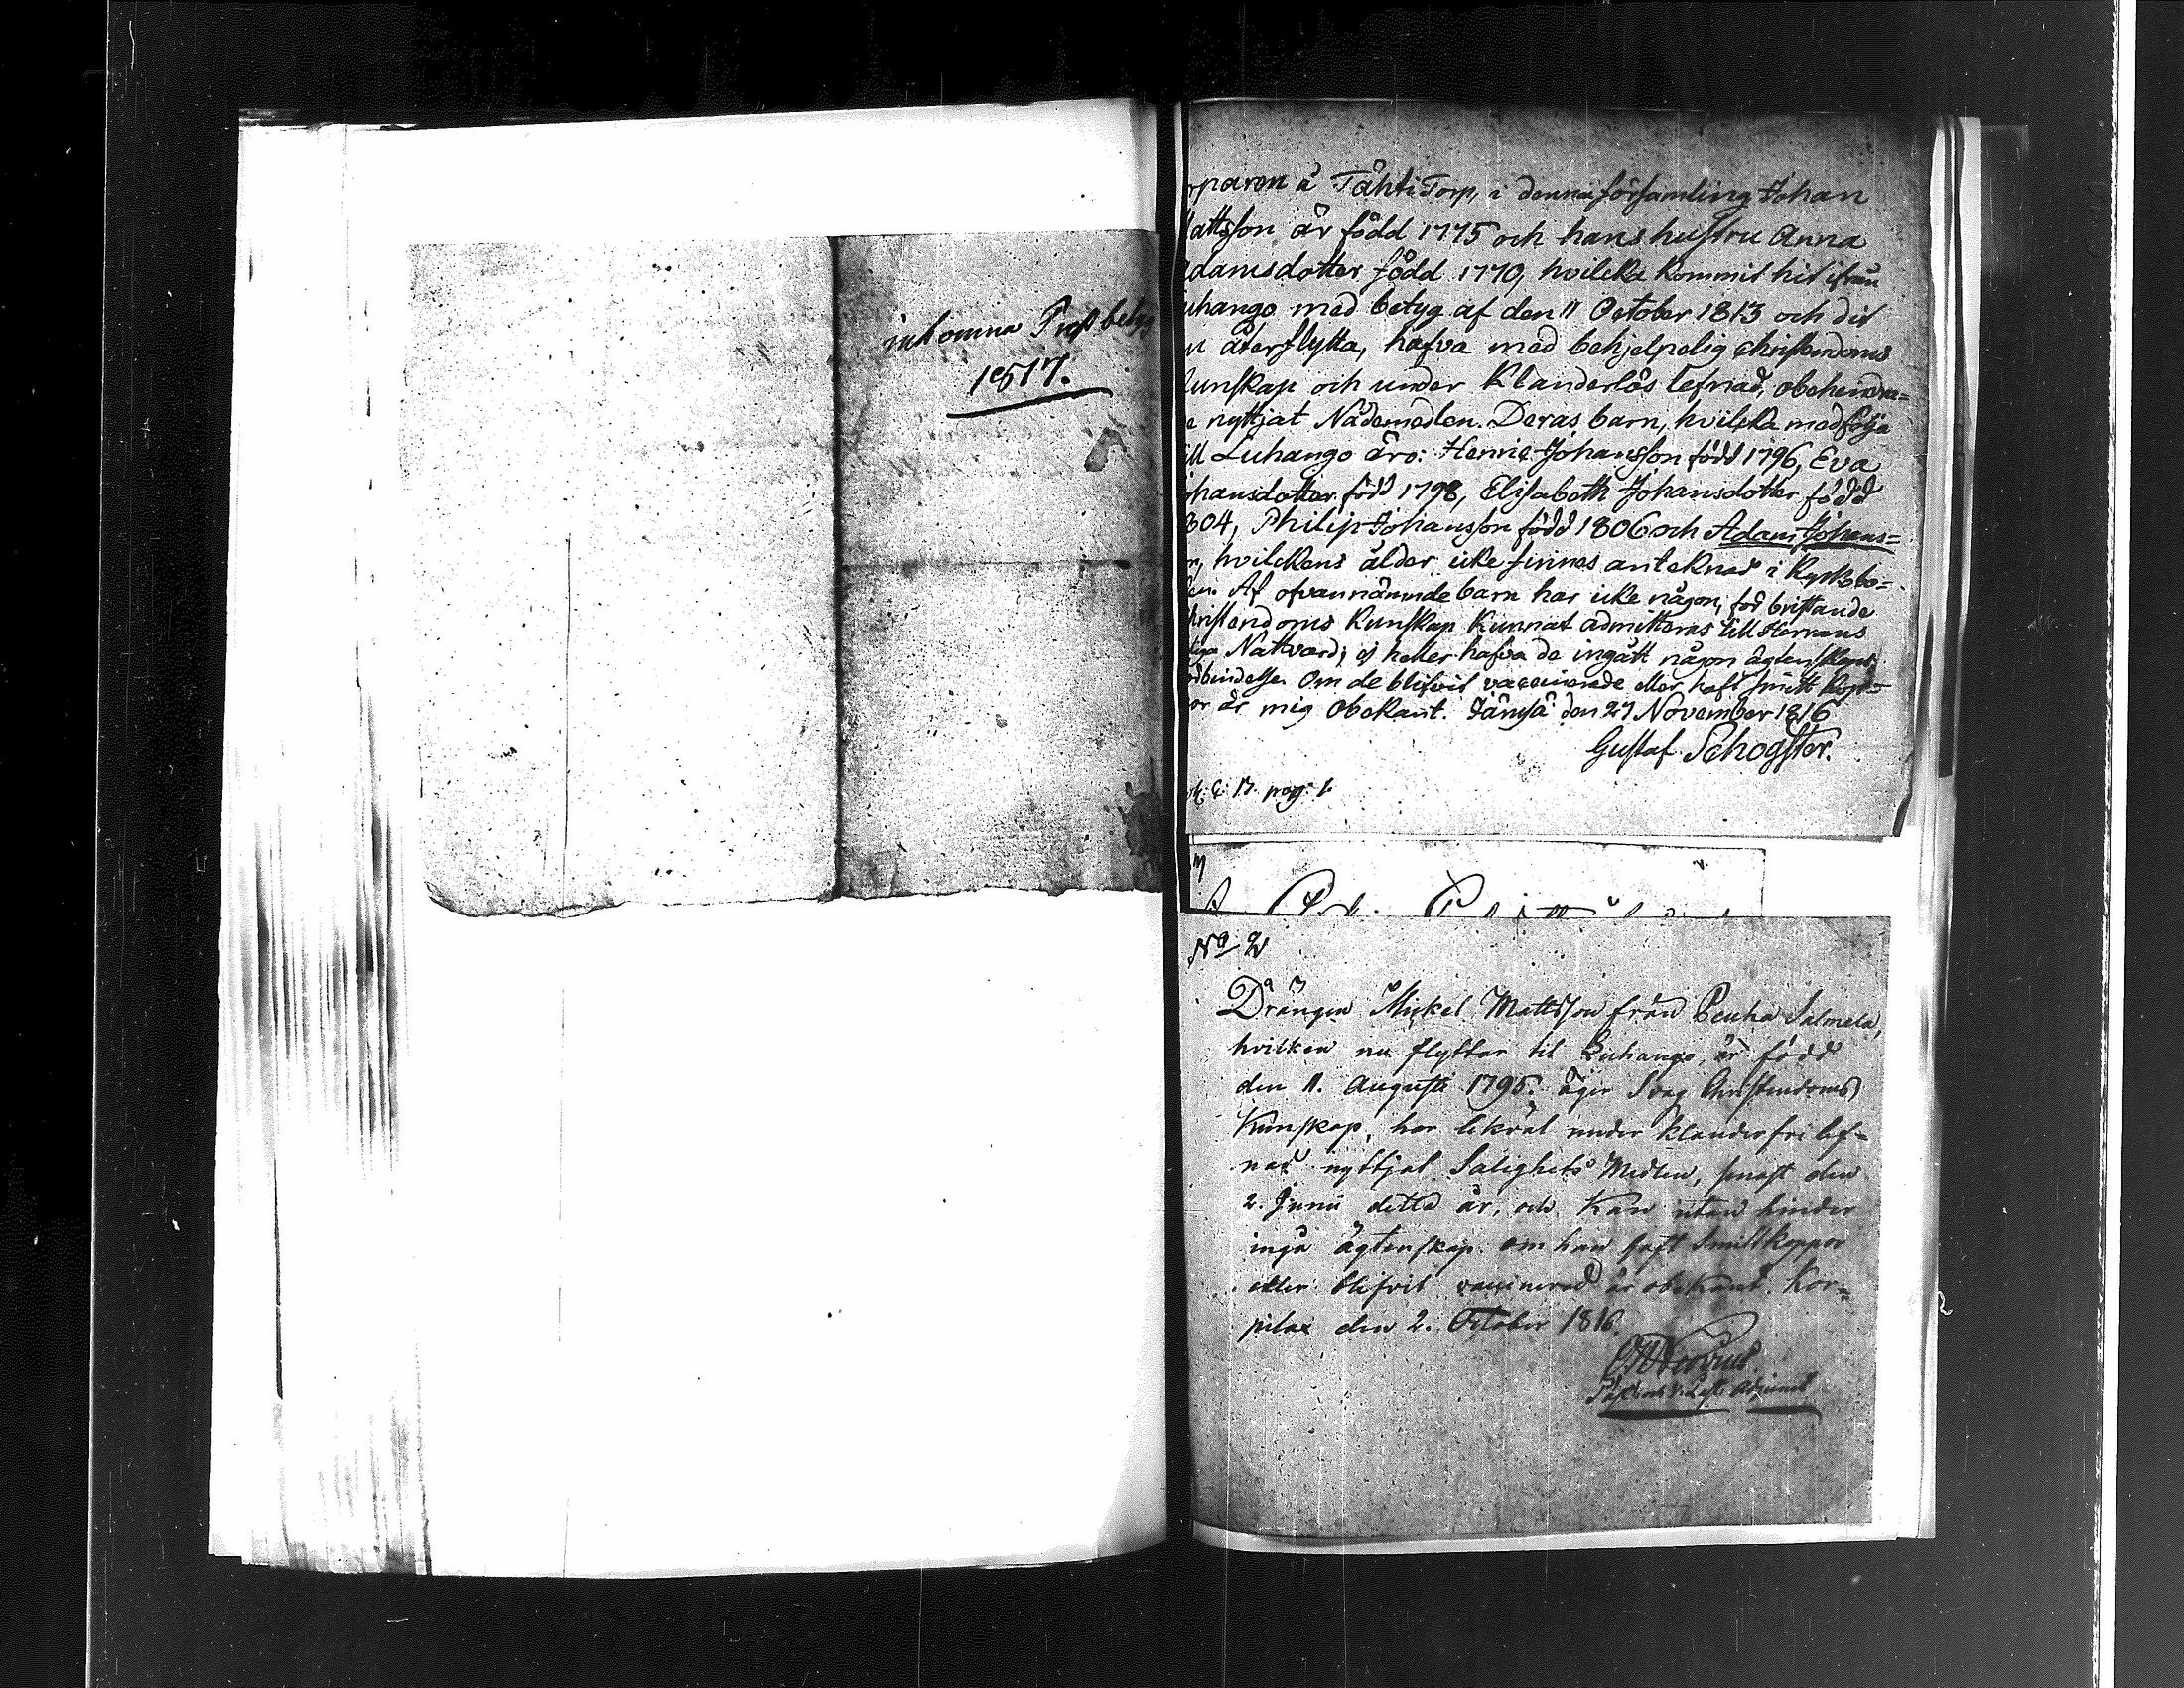 inkomna Prest betyg
1817.
rparen å Tähti Torp, i denna församling Johan
attsson är född 1775 och hans hustru Anna
damsdotter född 1770, hvilcka kommit hit ifrån
uhango med betyg af den 11 October 1813 och dit
u återflytta, hafva med behjelpelig christendoms
kunskap och under klanderlös lefnad, obehindra=
e nyttjat Nådemedlen. Deras barn, hvilcka medfölja
ill Luhango äro: Henric Johansson född 1796, Eva
ohansdotter född 1798, Elisabeth Johansdotter född
804, Philip Johansson född 1806 och Adam Johans=
n, hvilckens ålder icke finnes anteknad i Kyrkobo=
en. Af ofvannämnde barn har icke någon, för bristande
hristendoms kunskap kunnat admitteras till Herrans
Nattvard; ej heller hafva de ingått någon ägtenskaps
örbindelse. Om de blifvit vaccinerade eller haft smitt kop=
or är mig obekant. Jämsä den 27 November 1816
Gustaf Schogster.
17. pag. 1.
No 2
Drängen Mickel Mattsson från Peuha Salmela,
hvilken nu flyttar til Luhango, är född
den 11. Augusti 1795. äger Svag Christendoms
Kunskap, har likväl under klanderfri lef=
nad nyttjat Salighets Medlen, senast den
2. Junii detta år, och kan utan hinder
ingå ägtenskap. om han haft Smittkoppor
eller blifvit vaccinerad är obekant. Kor=
pilax den 2. October 1816.
Adjunct